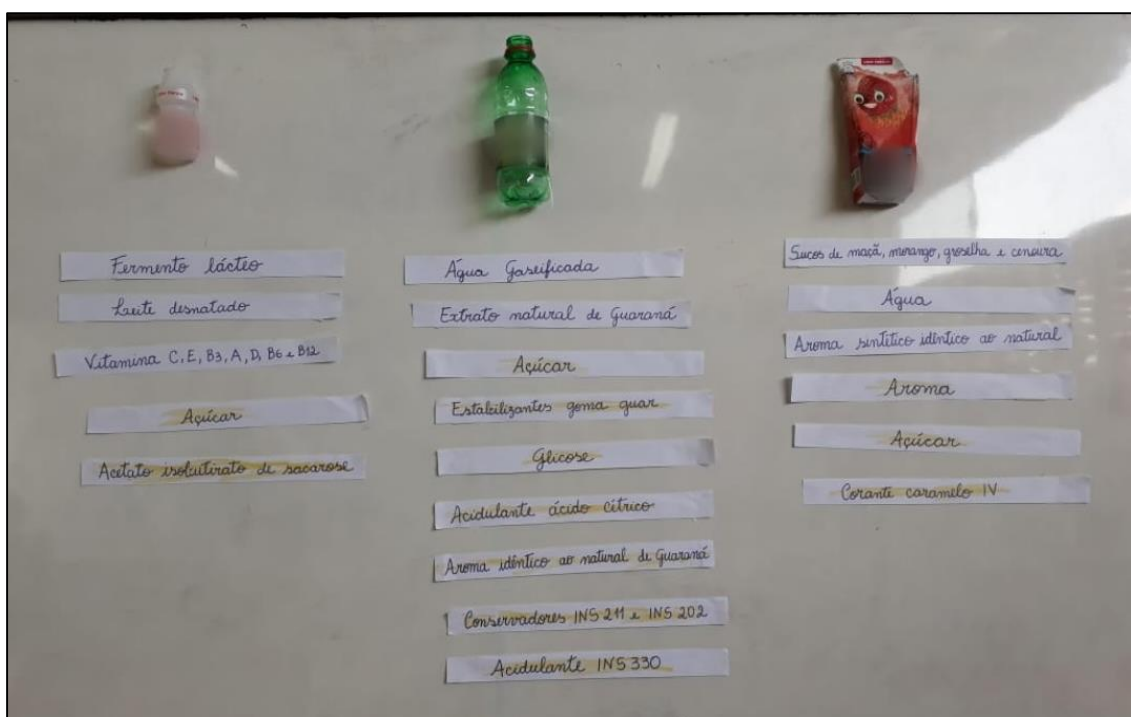 Fermento lácteo
Leite desnatado
Vitamina C, E, B3, A, D, B6 e B12
Açúcar
Acetato isobutirato de sacarose
Água Gaseificada
Extrato natural de Guaraná
Açúcar
Estabilizantes goma guar
Glicose
Acidulante ácido cítrico
Aroma idêntico ao natural de Guaraná
Conservadores INS 211 e INS 202
Acidulante INS 330
Sucos de maçã, morango, groselha e cenoura
Água
Aroma sintético idêntico ao natural
Aroma
Açúcar
Corante caramelo IV